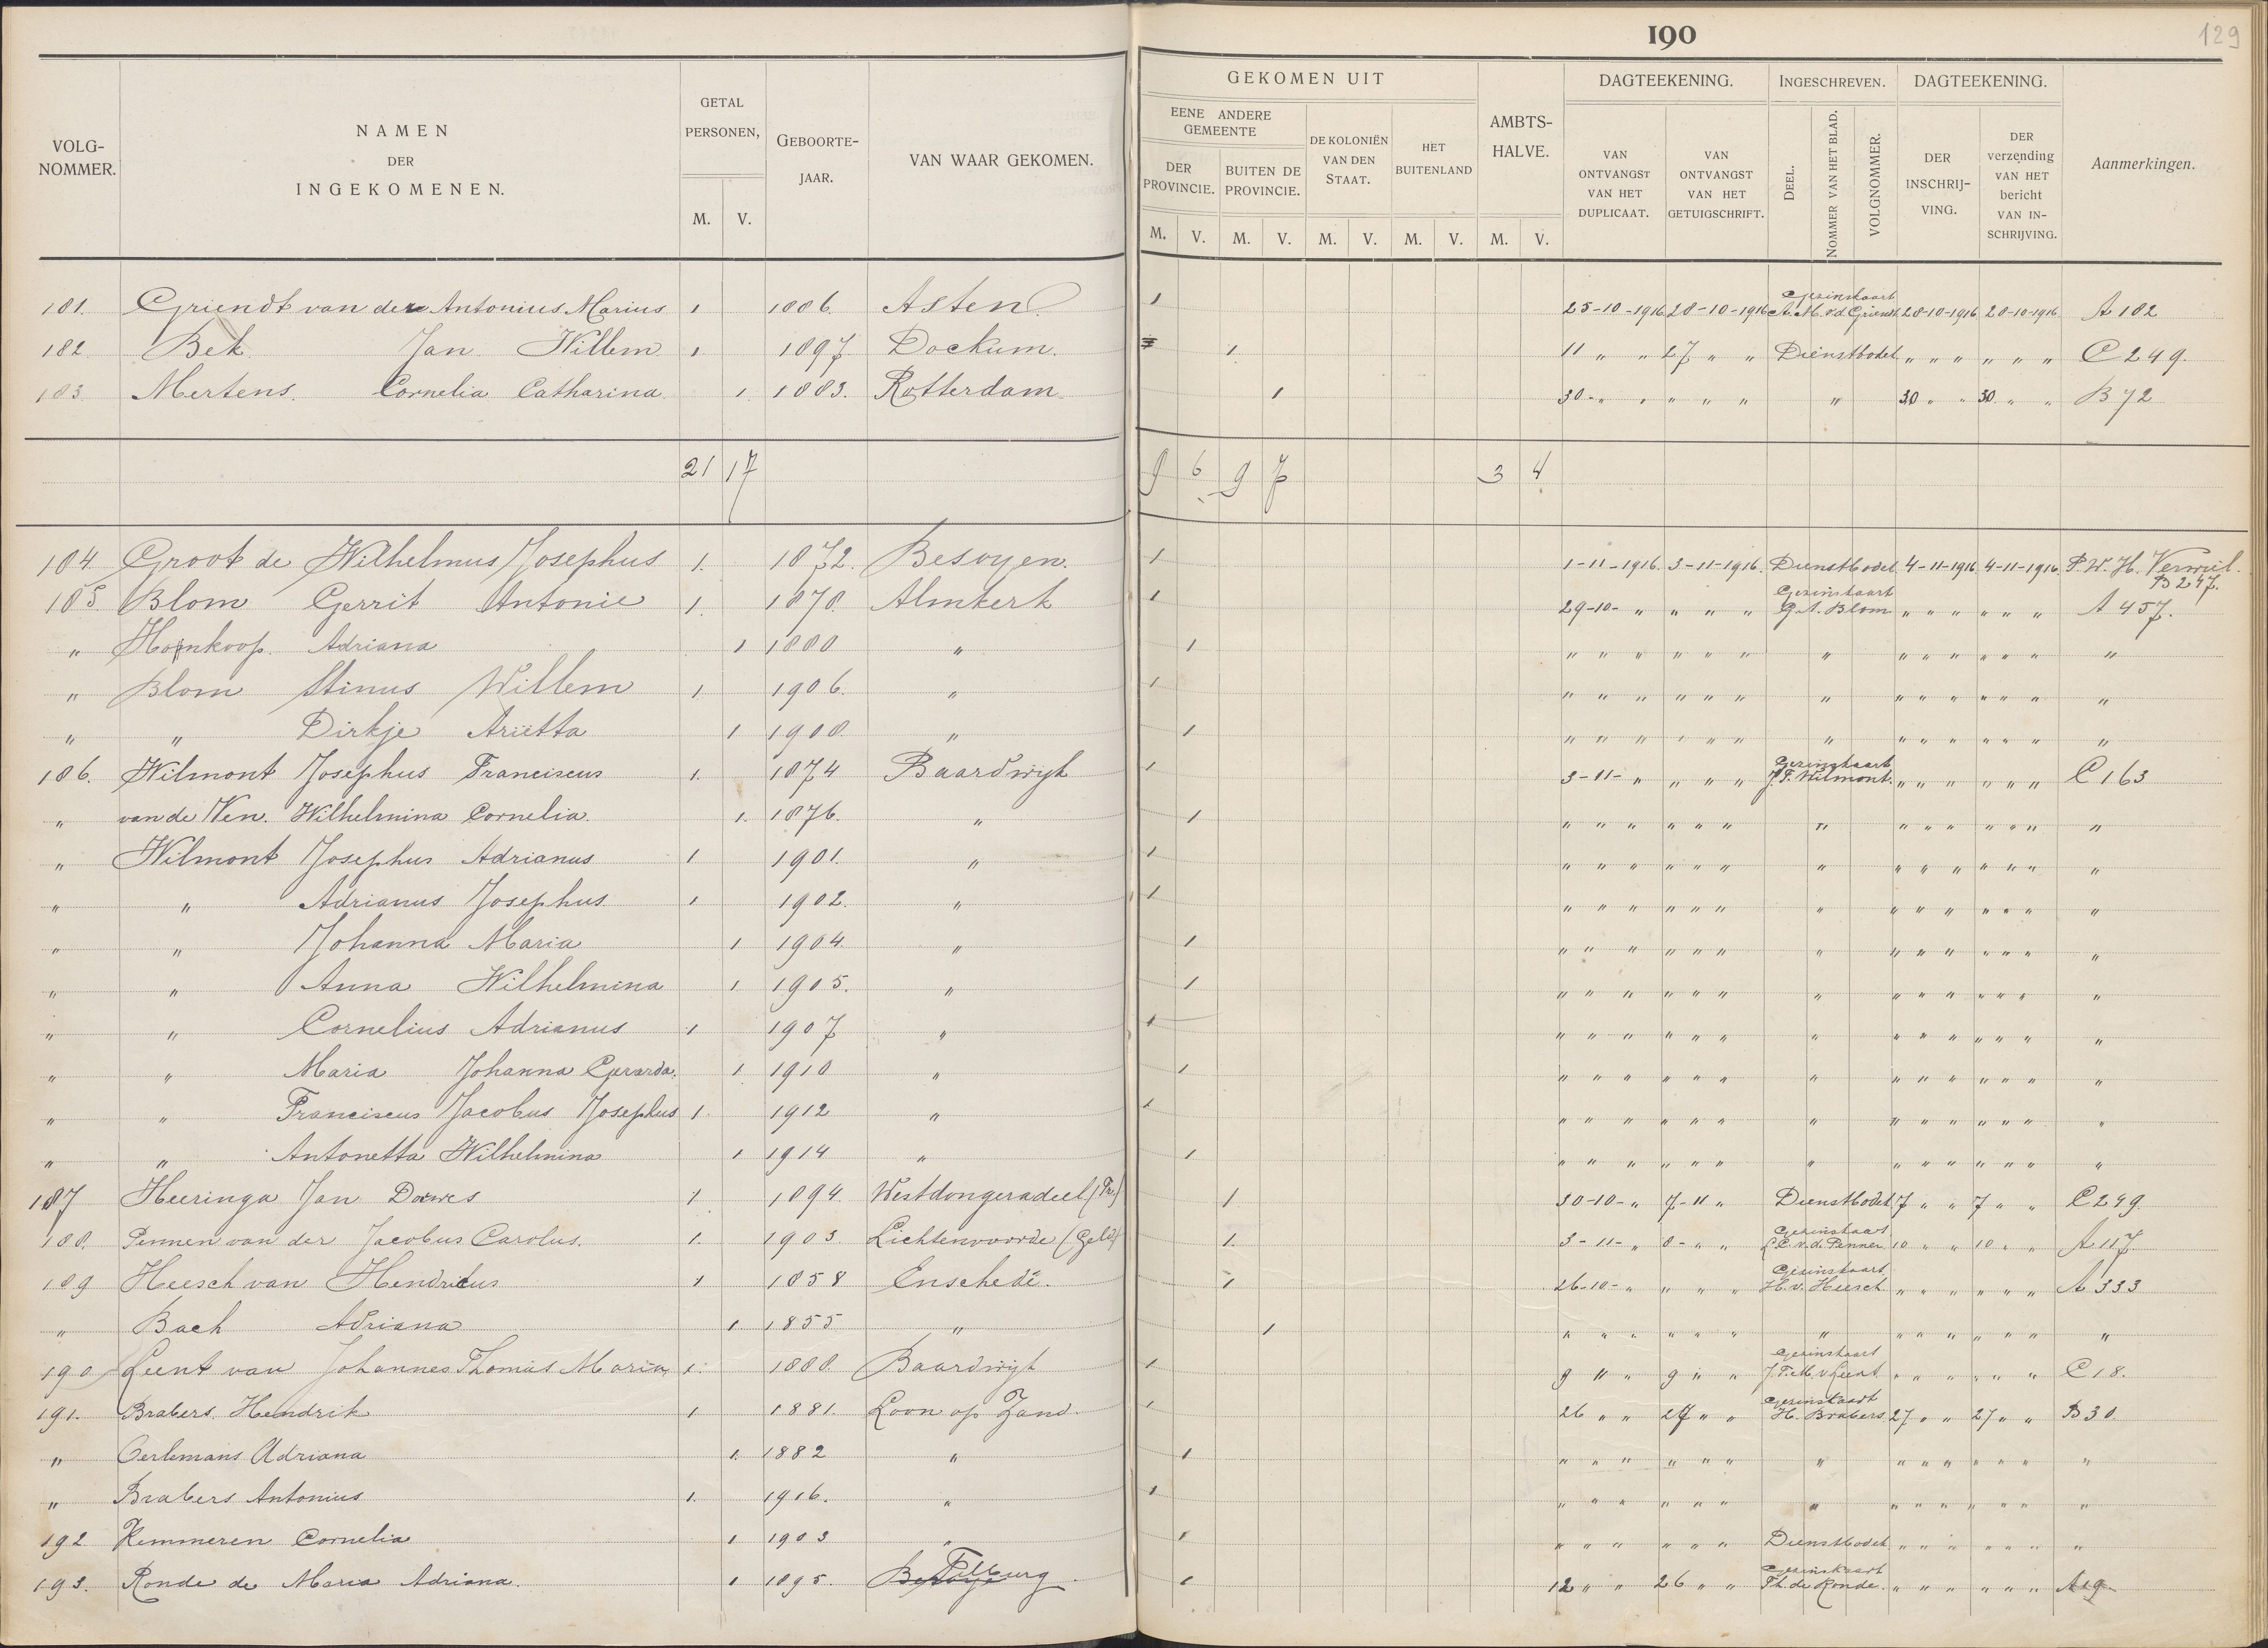 190
129
VOLG-NOMMER. NAMEN DER INGEKOMENEN. GETAL PERSONEN, M. V. GEBOORTE-JAAR. VAN WAAR GEKOMEN. GEKOMEN UIT EENE ANDERE GEMEENTE DER PROVINCIE. M. V. BUITEN DE PROVINCIE. M. V. DE KOLONIËN VAN DEN STAAT. M. V. HET BUITENLAND M. V. AMBTS-HALVE. M. V. DAGTEEKENING. VAN ONTVANGST VAN HET DUPLICAAT. VAN ONTVANGST VAN HET GETUIGSCHRIFT. INGESCHREVEN. DEEL. NOMMER VAN HET BLAD. VOLGNOMMER. DAGTEEKENING. DER INSCHRIJ-VING. DER verzending VAN HET bericht VAN IN-SCHRIJVING. Aanmerkingen.
181. Griendt van der Antonius Marius 1 1886. Asten 1 25-10-1916 28-10-1916 Gezinskaart A. M. v.d. Griendt 28-10-1916 28-10-1916 A 182
182. Bek Jan Willem 1 1897. Dockum. 1 11 " " 27 " " Dienstbodet " " " " " " C 249.
183. Mertens. Cornelia Catharina 1. 1883. Rotterdam 1 30 " " " " " " 30 " " 30 " " B 72
21 17 9 6 9 7 3 4
184. Groot de Wilhelmus Josephus 1. 1872. Besoyen. 1 1-11-1916. 3-11-1916. Dienstbodet 4-11-1916 4-11-1916. P. W. H. Verwiel. B 247.
185. Blom Gerrit Antonie 1. 1878. Almkerk 1 29-10- " " " " Gezinskaart G. A. Blom " " " " " " A 457.
" Honkoop. Adriana 1 1880 " 1 " " " " " " " " " " " " " "
" Blom Stinus Willem 1. 1906. " 1 " " " " " " " " " " " " " "
" " Dirkje Ariëtta 1 1908. " 1 " " " " " " " " " " " " " "
186. Wilmont Josephus Franciscus 1. 1874 Baardwijk 1 3-11- " " " " Gezinskaart J. F. Wilmont. " " " " " " C 163
" van de Ven. Wilhelmina Cornelia. 1. 1876. " 1 " " " " " " " " " " " " " "
" Wilmont Josephus Adrianus 1 1901. " 1 " " " " " " " " " " " " " "
" " Adrianus Josephus 1 1902. " 1 " " " " " " " " " " " " " "
" " Johanna Maria 1 1904. " 1 " " " " " " " " " " " " " "
" " Anna Wilhelmina 1 1905. " 1 " " " " " " " " " " " " " "
" " Cornelius Adrianus 1 1907 " 1 " " " " " " " " " " " " " "
" " Maria Johanna Gerarda. 1 1910 " 1 " " " " " " " " " " " " " "
" " Franciscus Jacobus Josephus 1. 1912 " 1 " " " " " " " " " " " " " "
" " Antonetta Wilhelmina 1 1914 " 1 " " " " " " " " " " " " " "
187 Heeringa Jan Douwes 1. 1894. Westdongeradeel (Fr) 1. 30-10- " 7-11 " Dienstbodet 7 " " 7 " " C 249.
188. Pennen van der Jacobus Carolus. 1. 1903 Lichtenvoorde (Geld) 1. 3-11- " 8- " " Gezinskaart v.d. Penner 10 " " 10 " " A 117
189 Heesch van Hendrikus 1 1858 Enschedé. 1 26-10- " " " " Gezinskaart H. v. Heesch " " " " " " A 333
" Bach Adriana 1. 1855 " 1 " " " " " " " " " " " " " "
190 Leent van Johannes Thomas Maria 1. 1888. Baardwijk 1 9 " " 9 " " Gezinskaart J. T. M. v Leent " " " " " " C 18.
191. Brabers. Hendrik 1 1881. Loon op Zand. 1 26 " " 27 " " Gezinskaart H. Brabers 27 " " 27 " " B 30.
" Oerlemans Adriana 1. 1882 " 1 " " " " " " " " " " " " " "
" Brabers Antonius 1. 1916. " 1 " " " " " " " " " " " " " "
192 Kemmeren Cornelia 1 1903 " 1 " " " " " " Dienstbodet " " " " " " "
193. Ronde de Maria Adriana. 1 1895. Tilburg 1 12 " " 26 " " Gezinskaart Th. de Ronde. " " " " " " A 19